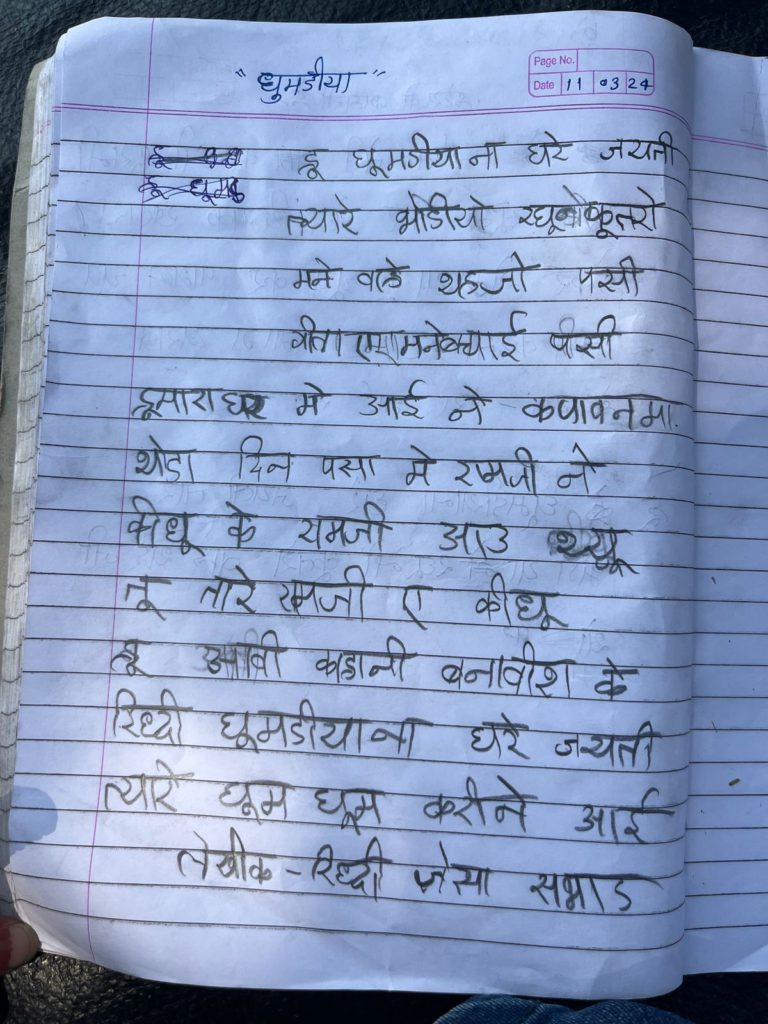 "घुमडीया"
Page No.
Date 11 03 24
हू घूमडीयाना घरे जयती
त्यारे भोडीयो रघूनोकूतरो
मने वाले थइजो पसी
गीता एमामनेबचाई पीसी
हूमाराघर मे आई ने कपावनमा.
थोडा दिन पसा मे रामजी ने
कीधू के रामजी आउ थ्यू
तू तारे रामजी ए कीधू
हू आवी कहानी बनावीश के
रिध्दी घूमडीयाना घरे जयती
त्यारे घूम घूम करीने आई
लेखीक - रिध्दी जेसा सम्राड